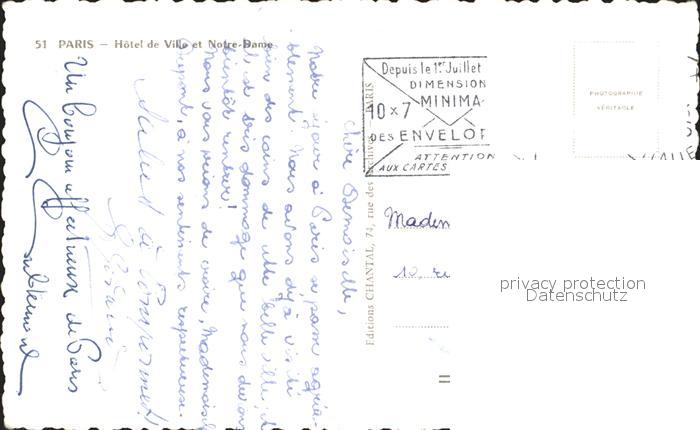 51 PARIS — Hôtel de Ville et Notre-Dame
Chère Demoiselle,
Notre séjour à Paris se passe agréa-
blement. Nous avons déjà visité
bien des coins de cette belle ville, et
c'est très dommage que nous devons
bientôt rentrer!
Nous vous prions de croire, Mademoisel
Dupont, à nos sentiments respectueux.
Salut à
Un bonjour affectueux de Paris
Editions CHANTAL, 74, rue des Archives - PARIS
Depuis le 1er Juillet
DIMENSION
MINIMA
10 x 7
DES ENVELOP
ATTENTION
AUX CARTES
PHOTOGRAPHIE
VÉRITABLE
Madem
10, ru
privacy protection
Datenschutz